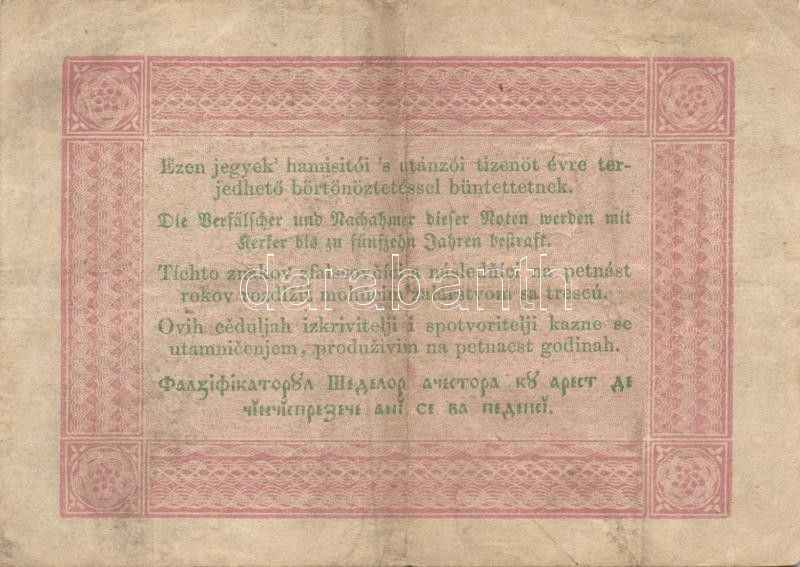 Ezen jegyek' hamisitói 's utánzói tizenöt évre ter-
jedhető börtönöztetéssel büntettetnek.
Die Verfälscher und Nachahmer dieser Noten werden mit
Kerker bis zu fünfzehn Jahren bestraft.
Tíchto znakov následňíci na petnást
rokov mohúcim sa trescú.
Ovih cěduljah izkrivitelji i spotvoritelji kazne se
utamničenjem, produživim na petnaest godinah.
Фалзіфікаторȣл Шеделор ачестора кȣ арест де
чінчіспрезече ані се ва педепсі.
darabanth